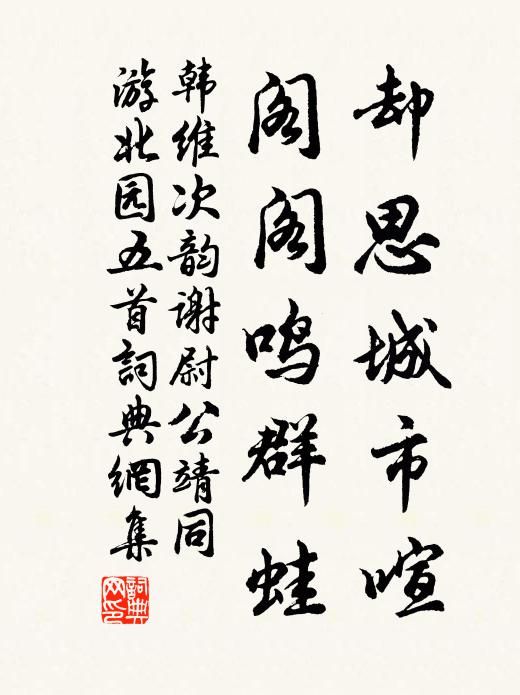 却思城市喧
阁阁鸣群蛙
韩维次韵谢尉公靖同
游北园五首詞典網集